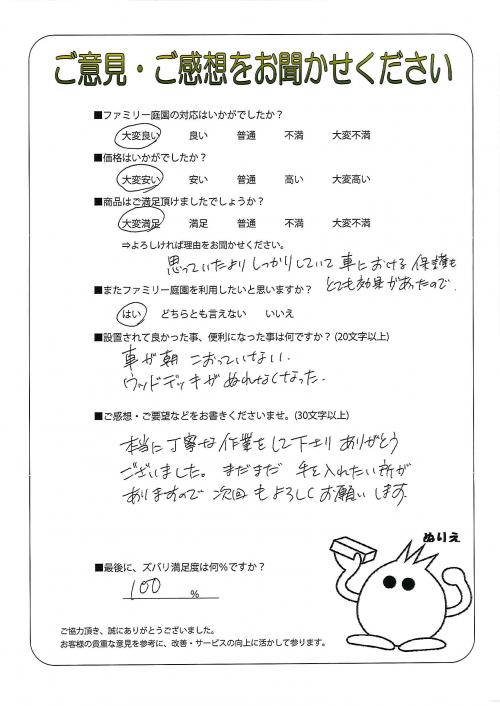 ご意見・ご感想をお聞かせください
■ファミリー庭園の対応はいかがでしたか？
大変良い 良い 普通 不満 大変不満
■価格はいかがでしたか？
大変安い 安い 普通 高い 大変高い
■商品はご満足頂けましたでしょうか？
大変満足 満足 普通 不満 大変不満
⇒よろしければ理由をお聞かせください。
思っていたよりしっかりしていて 車における 保護も
とても効果があったので.
■またファミリー庭園を利用したいと思いますか？
はい どちらとも言えない いいえ
■設置されて良かった事、便利になった事は何ですか？(20文字以上)
車が朝 こおっていない.
ウッドデッキがぬれなくなった.
■ご感想・ご要望などをお書きくださいませ。(30文字以上)
本当に丁寧な作業をして下さり ありがとう
ございました。まだまだ 手を入れたい所が
ありますので 次回もよろしくお願いします.
ぬりえ
■最後に、ズバリ満足度は何％ですか？
100 ％
ご協力頂き、誠にありがとうございました。
お客様の貴重な意見を参考に、改善・サービスの向上に活かして参ります。